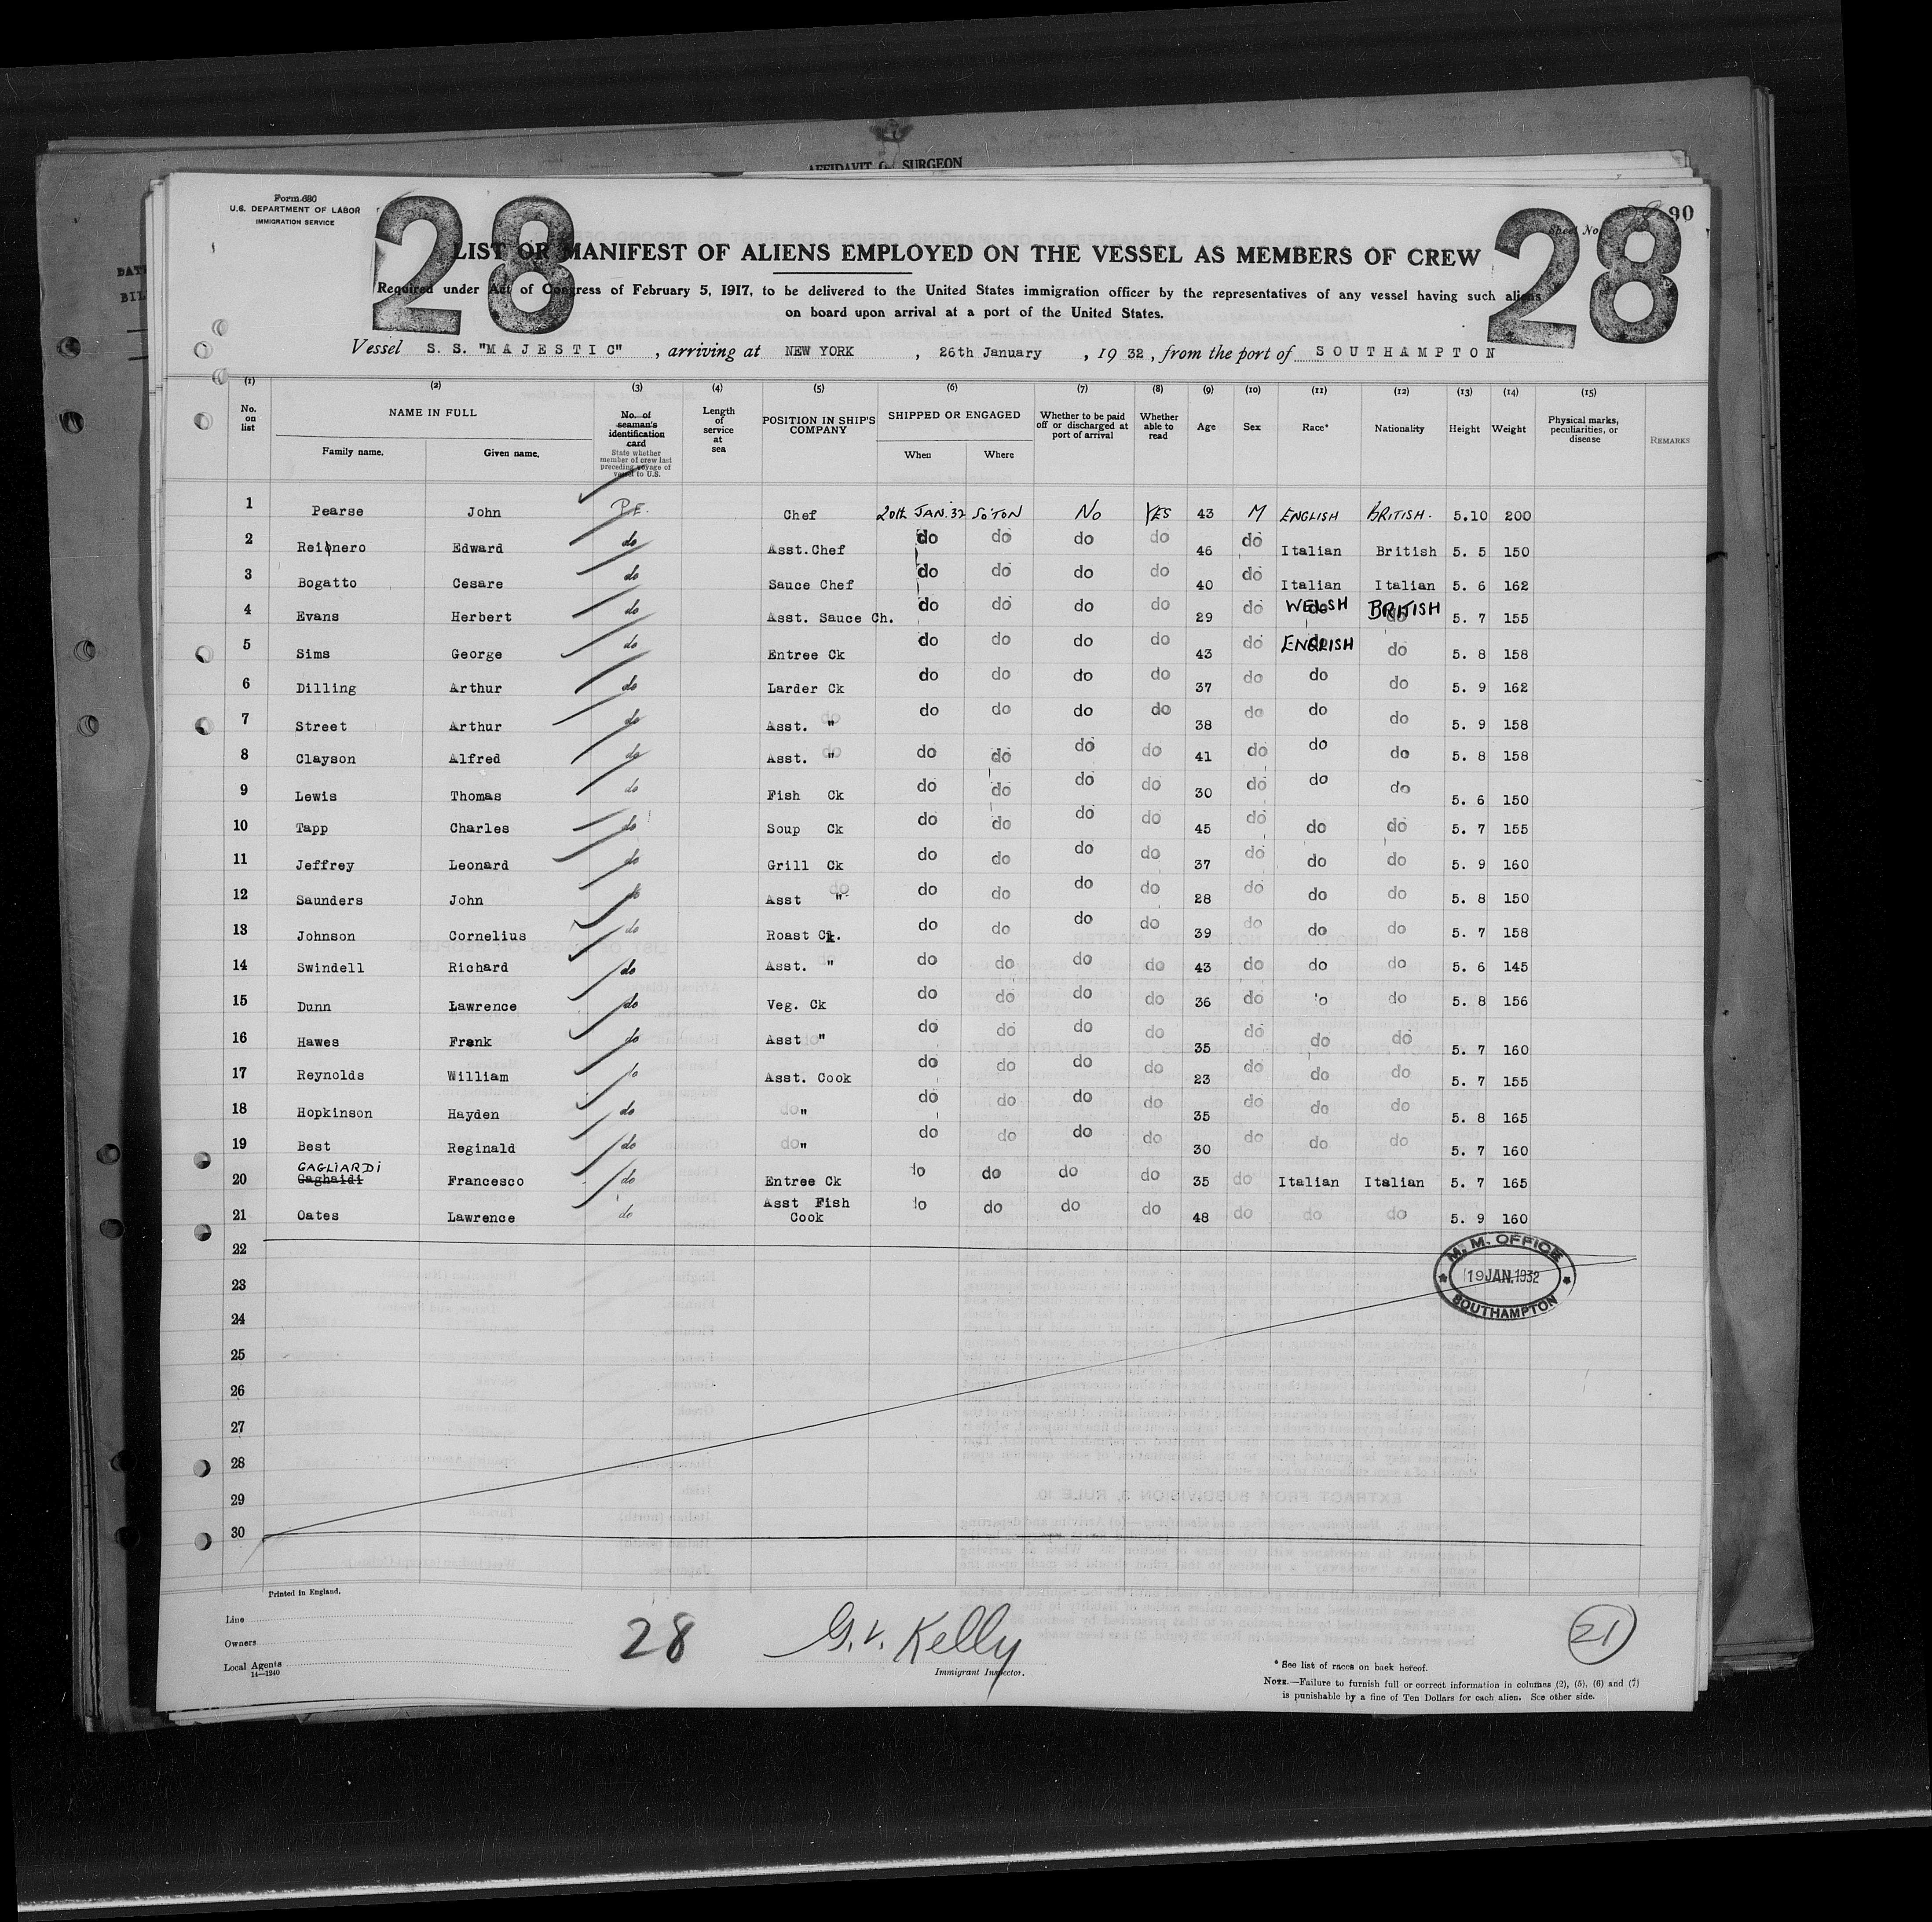 AFFIDAVIT O SURGEON
Form 680
U.S. DEPARTMENT OF LABOR
IMMIGRATION SERVICE
28
28
Sheet No. 90
LIST OR MANIFEST OF ALIENS EMPLOYED ON THE VESSEL AS MEMBERS OF CREW
Required under Act of Congress of February 5, 1917, to be delivered to the United States immigration officer by the representatives of any vessel having such aliens
on board upon arrival at a port of the United States.
Vessel S. S. "MAJESTIC", arriving at NEW YORK, 26th January, 1932, from the port of SOUTHAMPTON
(1) (2) (3) (4) (5) (6) (7) (8) (9) (10) (11) (12) (13) (14) (15)
No. on list NAME IN FULL Family name. Given name. No. of seaman's identification card State whether member of crew last preceding voyage of vessel to U.S. Length of service at sea POSITION IN SHIP'S COMPANY SHIPPED OR ENGAGED When Where Whether to be paid off or discharged at port of arrival Whether able to read Age Sex Race* Nationality Height Weight Physical marks, peculiarities, or disease REMARKS
1 Pearse John P.E. Chef 20th JAN. 32 So'TON No YES 43 M ENGLISH BRITISH. 5.10 200
2 Reionero Edward do Asst.Chef do do do do 46 do Italian British 5. 5 150
3 Bogatto Cesare do Sauce Chef do do do do 40 do Italian Italian 5. 6 162
4 Evans Herbert do Asst. Sauce Ch. do do do do 29 do WELSH BRITISH 5. 7 155
5 Sims George do Entree Ck do do do do 43 do ENGLISH do 5. 8 158
6 Dilling Arthur do Larder Ck do do do do 37 do do do 5. 9 162
7 Street Arthur do Asst. " do do do do 38 do do do 5. 9 158
8 Clayson Alfred do Asst. " do do do do 41 do do do 5. 8 158
9 Lewis Thomas do Fish Ck do do do do 30 do do do 5. 6 150
10 Tapp Charles do Soup Ck do do do do 45 do do do 5. 7 155
11 Jeffrey Leonard do Grill Ck do do do do 37 do do do 5. 9 160
12 Saunders John do Asst " do do do do 28 do do do 5. 8 150
13 Johnson Cornelius do Roast Ck. do do do do 39 do do do 5. 7 158
14 Swindell Richard do Asst. " do do do do 43 do do do 5. 6 145
15 Dunn Lawrence do Veg. Ck do do do do 36 do do do 5. 8 156
16 Hawes Frank do Asst " do do do do 35 do do do 5. 7 160
17 Reynolds William do Asst. Cook do do do do 23 do do do 5. 7 155
18 Hopkinson Hayden do do " do do do do 35 do do do 5. 8 165
19 Best Reginald do do " do do do do 30 do do do 5. 7 160
GAGLIARDI
20 Gaghaidi Francesco do Entree Ck do do do do 35 do Italian Italian 5. 7 165
21 Oates Lawrence do Asst Fish Cook do do do do 48 do do do 5. 9 160
22
23
24
25
26
27
28
29
30
M. M. OFFICE
19 JAN. 1932
SOUTHAMPTON
Printed in England.
Line
Owners
Local Agents
14—1240
28
G. V. Kelly
Immigrant Inspector.
21
* See list of races on back hereof.
NOTE.—Failure to furnish full or correct information in columns (2), (5), (6) and (7)
is punishable by a fine of Ten Dollars for each alien. See other side.